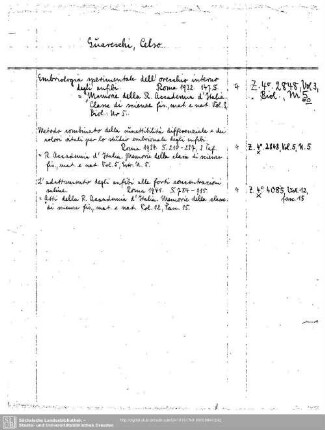 Guareschi, Celso.
Embriologia sperimentale dell' orecchio interno
degli anfibi Roma 1932 147 S. 4 Z. 4° 2848, Vol. 3,
= Memorie della R. Accademia d' Italia. Biol., N. 5
Classe di scienze fis, mat e nat Vol. 3,
Biol. Nr 5.
Metodo combinato della suscettibilità differenziale e dei
colori vitali per lo studio embrionale degli anfibi.
Roma 1934. 3 Taf. 4 Z. 4° 2848, Vol. 5, N. 5
= R. Accademia d' Italia. Memorie della classe di scienze
fis, mat e nat Vol. 5, N. 5.
L'adattamento degli anfibi alle forti concentrazioni
saline. Roma 1941. 4 Z. 4° 4085, Vol. 12,
= Atti della R. Accademia d' Italia. Memorie della classe fasc. 15
di scienze fis, mat e nat Vol. 12, Fasc. 15.
Sächsische Landesbibliothek -
Staats- und Universitätsbibliothek Dresden